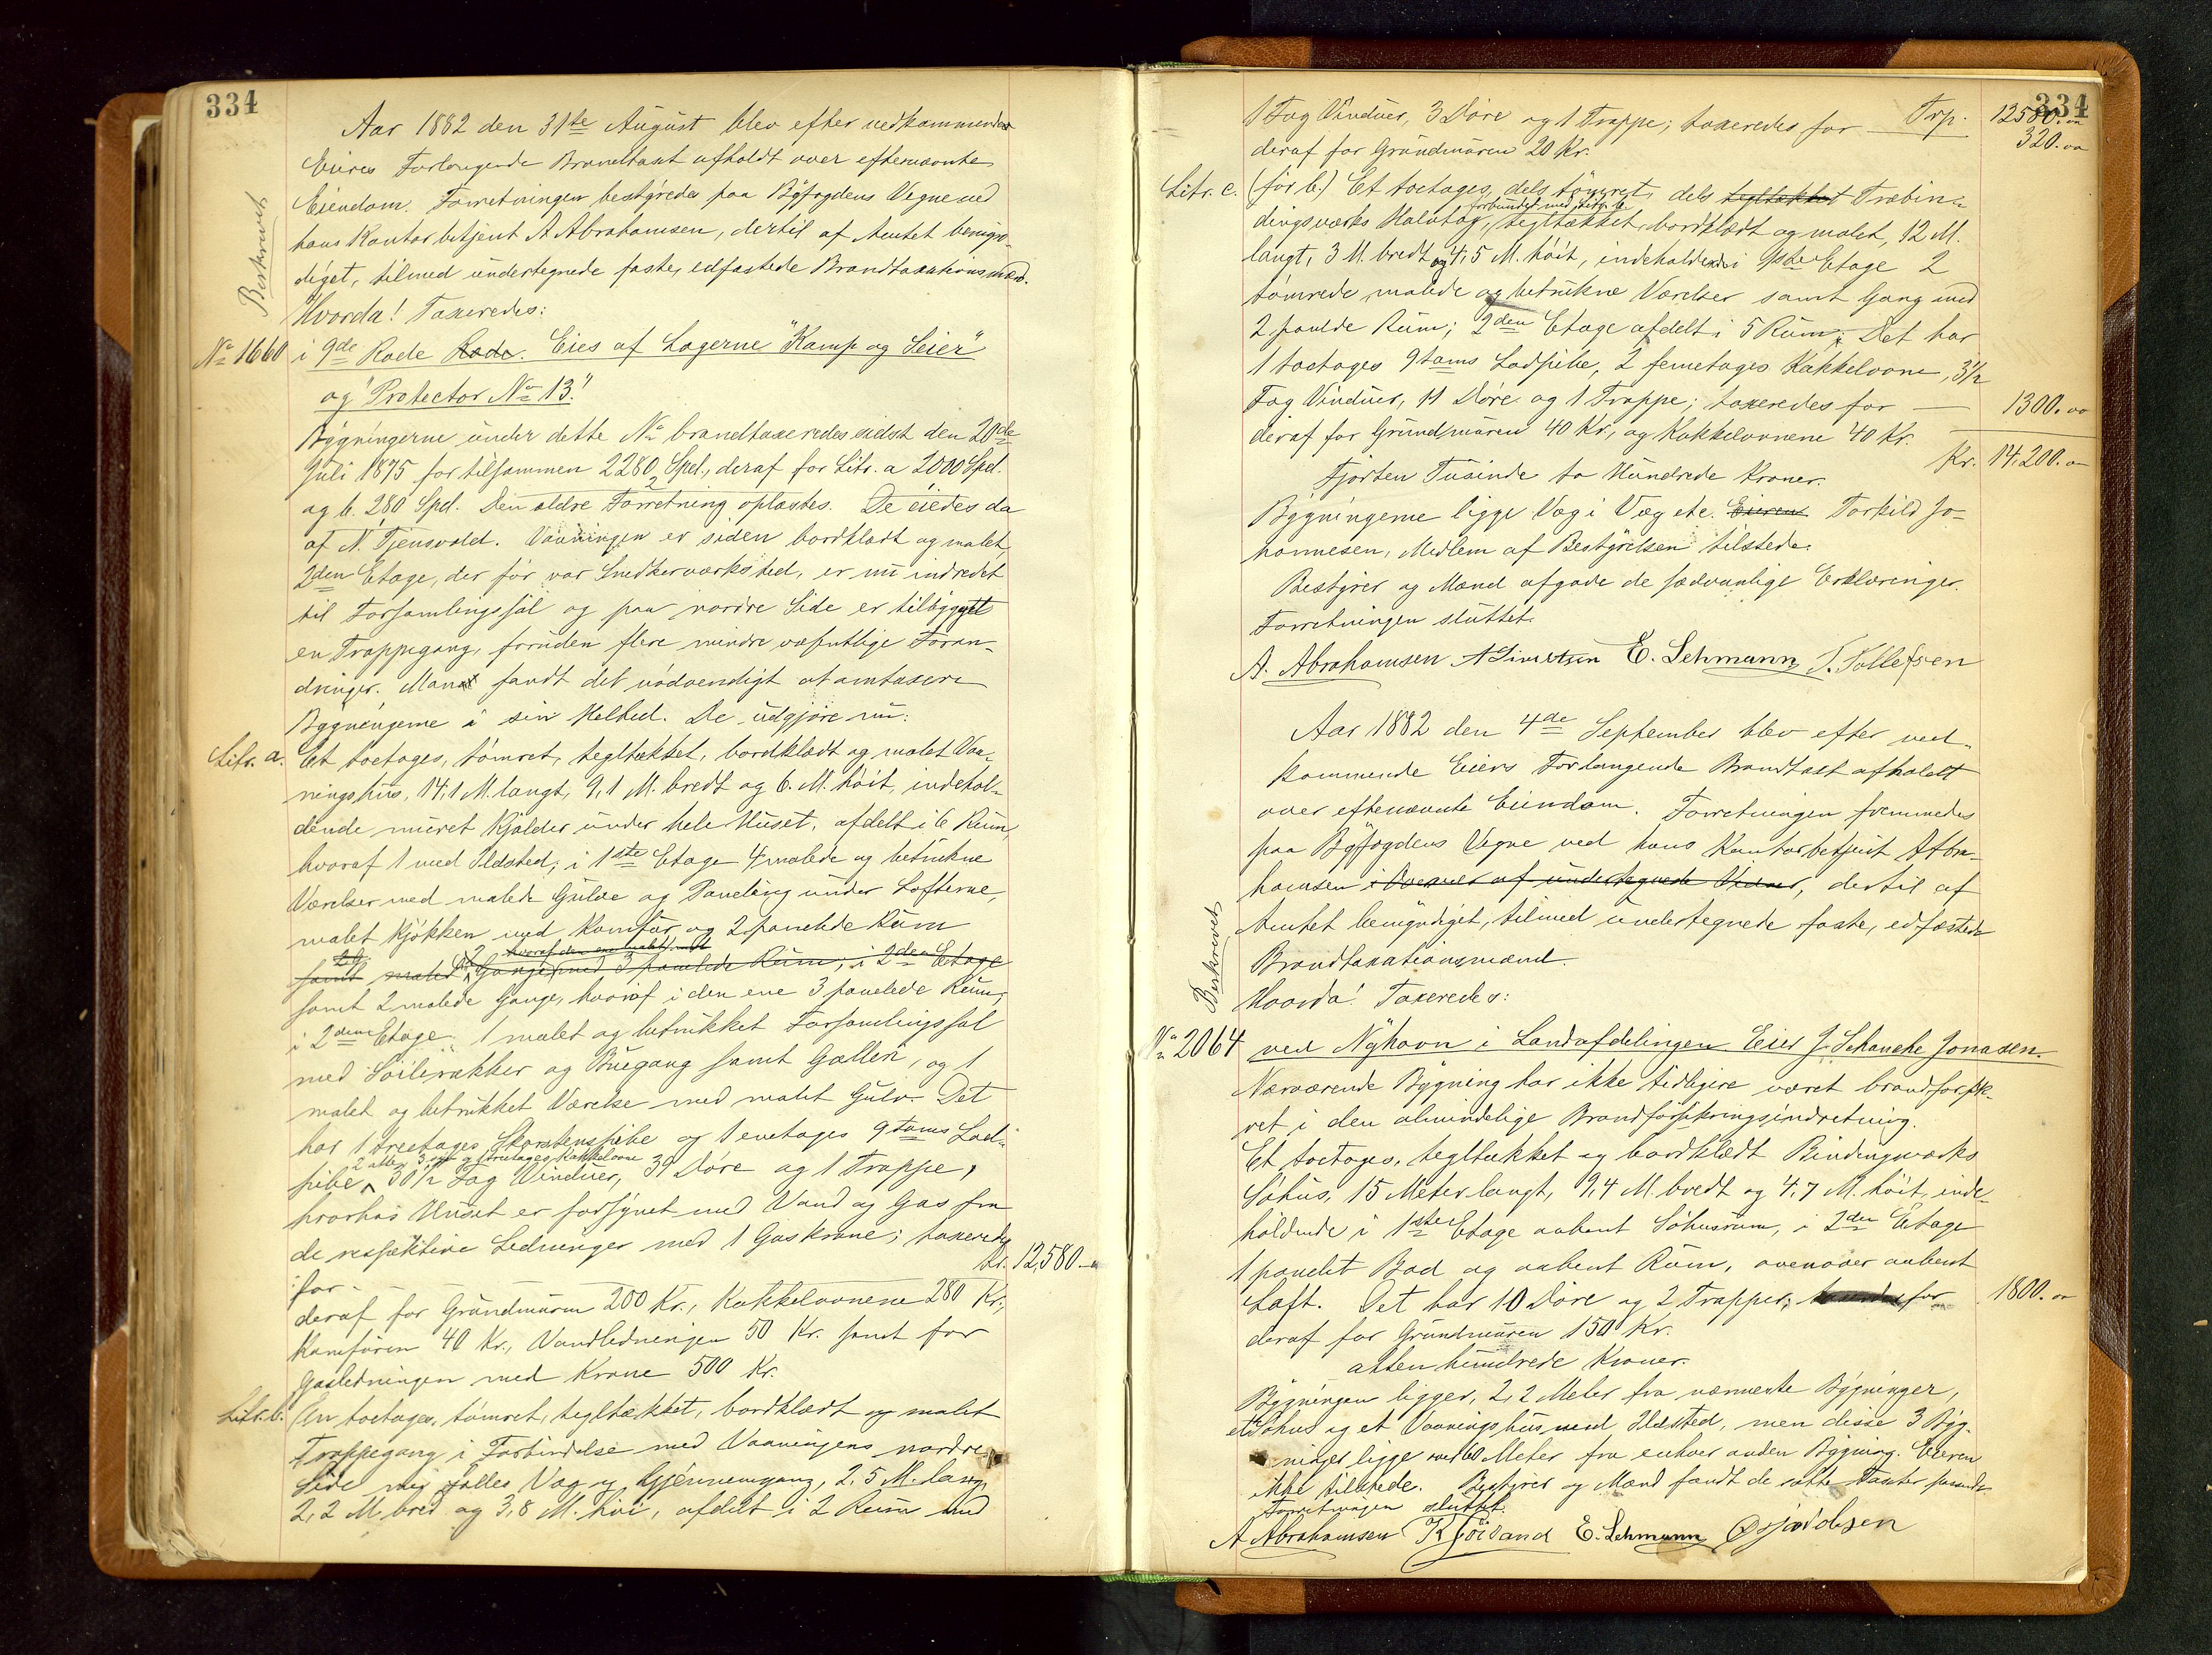 334
Aar 1882 den 31te August blev efter vedkommendes
Eieres Forlangende Brandtaxt afholdt over efternævnte
Eiendom. Forretningen bestyredes paa Byfogdens Vegne ved
hans Kontorbetjent A Abrahamsen, dertil af Amtet bemyn-
diget, tilmed undertegnede faste, edfæstede Brandtaxationsmænd.
Beskrevet
Hvorda! Taxeredes:
No 1660 i 9de Rode Rode. Eies af Logerne "Kamp og Seier"
og "Protector No 13."
Bygningerne under dette No brandtaxeredes sidst den 20de
Juli 1875 for tilsammen 2280 Spd., deraf for Litr. a 2000 Spd.
og b. 280 Spd. Den ældre Forretning oplæstes. De eiedes da
af N. Tjensvold. Vaaningen er siden bordklædt og malet,
2den Etage, der før var Snedkerværksted, er nu indredet
til Forsamlingssal og paa nordre Side er tilbygget
en Trappegang, foruden flere mindre væsentlige Foran-
dringer. Man fandt det nødvendigt at omtaxere
Bygningerne i sin Helhed. De udgjøre nu:
Litr. a. Et toetages, tømret, tegltækket, bordklædt og malet Vaa-
ningshus, 14,1 M. langt, 9,1 M. bredt og 6. M. høit, indehol-
dende muret Kjælder under hele Huset, afdelt i 6 Rum,
hvoraf 1 med Ildsted; i 1ste Etage 4 malede og betrukne
Værelser med malede Gulve og Paneling under Lofterne,
malet Kjøkken med Komfur og 2 panelede Rum
hvoraf den ene malet
samt malede Gange med 3 panelede Rum; i 2den Etage
samt 2 malede Gange, hvoraf i den ene 3 panelede Rum;
i 2den Etage 1 malet og betrukket Forsamlingssal
med Søilerækker og Buegang samt Galleri, og 1
malet og betrukket Værelse med malet Gulv. Det
har 1 treetages Skorstenspibe og 1 enetages 9toms Lod-
2 alen 3 og treetages Kakkelovne
pibe, 30 1/2 Fag Vinduer, 39 Døre og 1 Trappe,
hvorhos Huset er forsynet med Vand og Gas fra
de respektive Ledninger med 1 Gaskrone; taxeredes
for Kr. 12,580.-
deraf for Grundmuren 200 Kr., Kakkelovnene 280 Kr.,
Komfuren 40 Kr., Vandledningen 50 Kr. samt for
Gasledningen med Krone 500 Kr.
Litr. b. En toetages, tømret, tegltækket, bordklædt og malet
Trappegang i Forbindelse med Vaaningens nordre
Side med fælles Væg og Gjennemgang, 2,5 M. lang,
2,2 M. bred og 3,8 M. høi, afdelt i 2 Rum med
334
1 Fag Vinduer, 3 Døre og 1 Trappe; taxeredes for Trp. 12580.00
320.00
deraf for Grundmuren 20 Kr.
Litr. c. (før b.) Et toetages, dels tømret, dels tegltækket Træbin-
forbundet med Litr. b
dingsværks Halvtag, tegltækket, bordklædt og malet, 12 M.
langt, 3 M. bredt og 4,5 M. høit, indeholdende i 1ste Etage 2
tømrede, malede og betrukne Værelser samt Gang med
2 panlde Rum; 2den Etage afdelt i 5 Rum. Det har
1 toetages 9toms Lodpibe, 2 femetages Kakkelovne, 3 1/2
Fag Vinduer, 11 Døre og 1 Trappe; taxeredes for — 1300.00
deraf for Grundmuren 40 Kr., og Kakkelovnene 40 Kr.
Kr. 14,200.00
Fjorten Tusinde to Hundrede Kroner.
Bygningerne ligge Væg i Væg etc. Eieren Torkild Jo-
hannesen, Medlem af Bestyrelsen tilstede.
Bestyrer og Mænd afgave de sædvanlige Erklæringer.
Forretningen sluttet.
A. Abrahamsen E. Lehmann T. Tollefsen
Aar 1882 den 4de September blev efter ved-
kommende Eiers Forlangende Brandtaxt afholdt
over eftenævnte Eiendom. Forretningen fremmedes
paa Byfogdens Vegne ved hans Kontorbetjent A Abra-
hamsen i Overvær af undertegnede Vidner, dertil af
Amtet bemyndiget, tilmed undertegnede faste, edfæstede
Beskrevet
Brandtaxationsmænd.
Hvorda! Taxeredes:
No 2064 ved Nyhavn i Landafdelingen. Eier J. Schanche Jonasen.
Nærværende Bygning har ikke tidligere været brandforsik-
ret i den almindelige Brandforsikringsindretning.
Et toetages, tegltækket og bordklædt Bindingsværks
Søhus, 15 Meter langt, 9,4 M. bredt og 4,7 M. høit, inde-
holdende i 1ste Etage aabent Søhusrum, i 2den Etage
1 panelet Bod og aabent Rum, ovenover aabent
Loft. Det har 10 Døre og 2 Trapper; taxeredes for 1800.00
deraf for Grundmuren 150 Kr.
atten hundrede Kroner.
Bygningen ligger, 2,2 Meter fra nærmeste Bygninger,
et Søhus og et Vaaningshus med Ildsted, men disse 3 Byg-
ninger ligge over 60 Meter fra enhver anden Bygning. Eieren
ikke tilstede. Bestyrer og Mænd fandt de satte Taxter passende.
Forretningen sluttet.
A Abrahamsen E. Lehmann